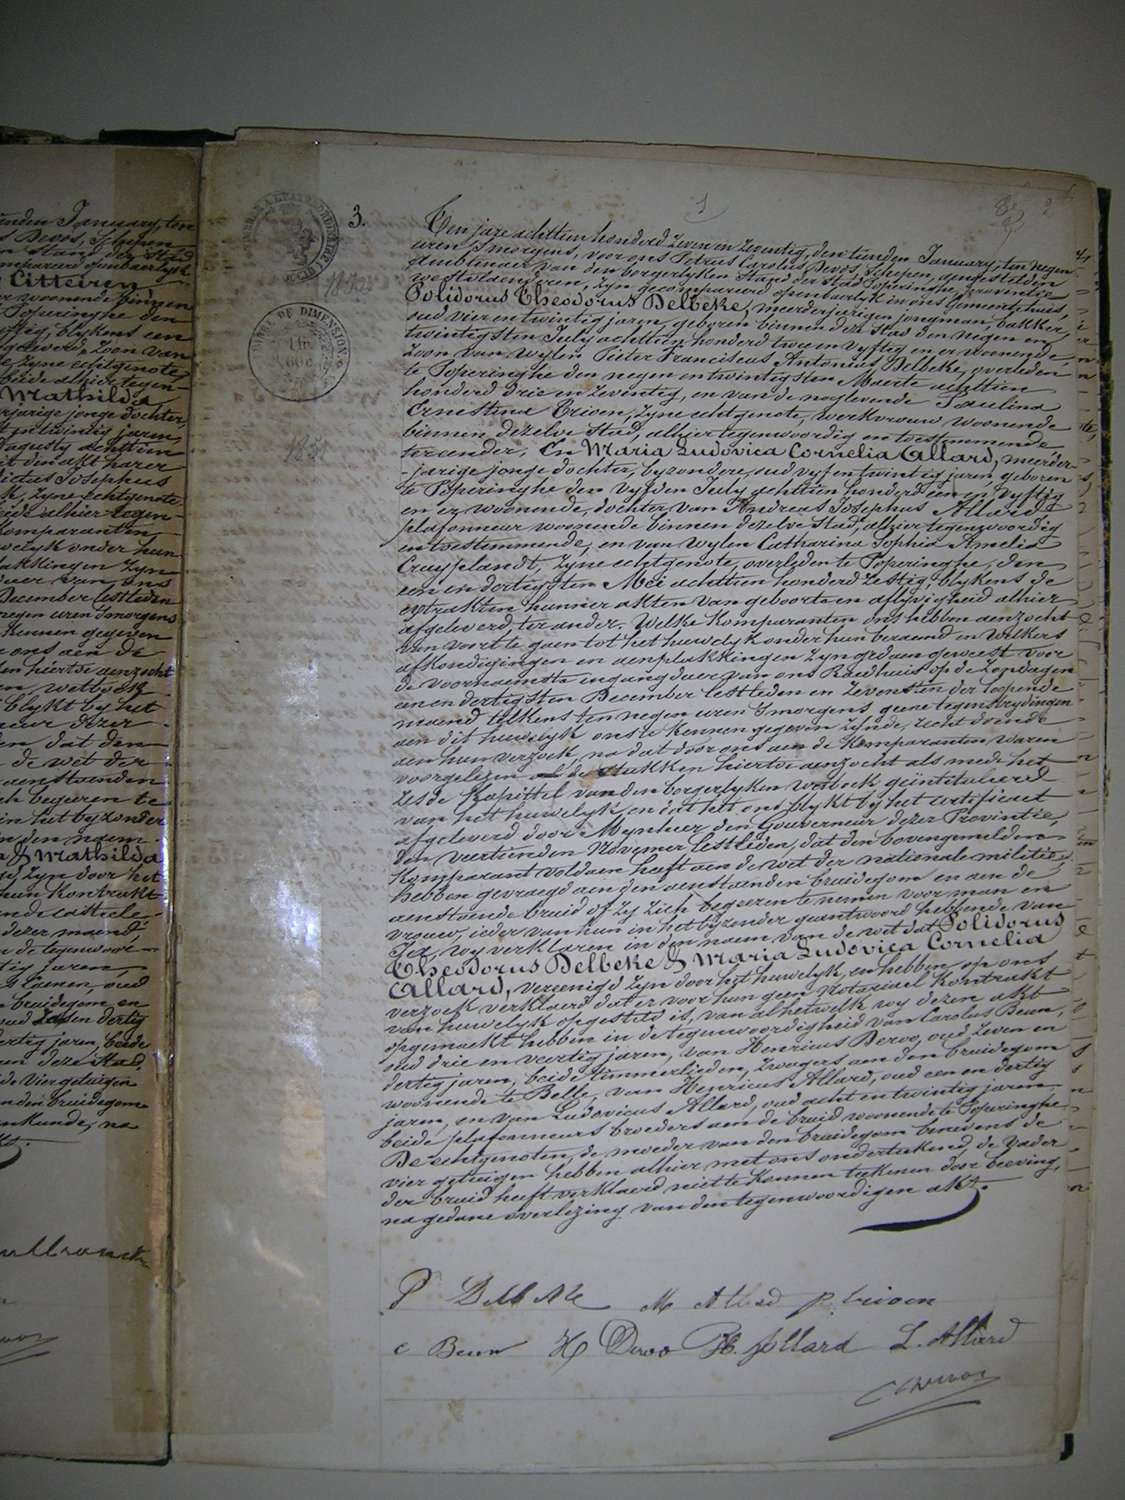 3.
Ten jare achttien honderd zeven en zeventig, den tienden January, ten negen
uren s'morgens, voor ons Petrus Carolus Devos, Schepen, aengestelden
Ambtenaer van den borgerlyken Stand der Stad Poperinghe, provintie
westvlaenderen, zyn gecompareerd openbaerlyk in ons Gemeentehuis,
Polidorus Theodorus Delbeke, meerderjarigen jongman, bakker,
oud vier en twintig jaren, geboren binnen deze Stad den negen en
twintigsten July achttien honderd twee en vyftig en er woonende,
zoon van wylen Pieter Franciscus Antonius Delbeke, overleden
te Poperinghe den negen en twintigsten Maerte achttien
honderd drie en zeventig, en van de nog levende Paulina
Ernestina Crioen, zyne echtgenote, werkvrouw woonende
binnen dezelve Stad, alhier tegenwoordig en toestemmende
ter eender, En Maria Ludovica Cornelia Allard, meerder-
-jarige jonge dochter, byzondere, oud vyf en twintig jaren, geboren
te Poperinghe den vyfden July achttien honderd een en vyftig
en er woonende, dochter van Andreas Josephus Allard,
plafonneur woonende binnen dezelve Stad, alhier tegenwoordig
en toestemmende, en van wylen Catharina Sophia Amelia
Cruyselandt, zyne echtgenote, overleden te Poperinghe, den
een en dertigsten Mei achttien honderd zestig, blykens de
extrakten hunner akten van geboorte en aflyvigheid alhier
afgeleverd ter ander. Welke Komparanten ons hebben aenzocht
van voort te gaen tot het huwelyk onder hun beraemd en welkers
afkondigingen en aenplakkingen zyn gedaen geweest voor
de voornaemste ingangdeur van ons Raedhuis op de zondagen
een en dertigsten December lestleden en zevensten der loopende
maend telkens ten negen uren s'morgens geene tegenstrydingen
aen dit huwelyk ons te kennen gegeven zynde, recht doende
aen hun verzoek, na dat door ons aen de Komparanten waren
voorgelezen al de stukken hiertoe aenzocht als mede het
zesde Kapittel van den borgerlyken wetboek geïntituleerd
van het huwelyk, en dat het ons blykt by het certificaet
afgeleverd door Mynheer den Gouverneur dezer Provintie,
den veertienden November lestleden, dat den bovengemelden
Komparant voldaen heeft aen de wet der nationale militie,
hebben gevraegd aen den aenstaenden bruidegom en aen de
aenstaende bruid of zy zich begeeren te nemen voor man en
vrouw, ieder van hun in het byzonder geantwoord hebbende van
Ja, wy verklaren in den naem van de wet dat Polidorus
Theodorus Delbeke & Maria Ludovica Cornelia
Allard, vereenigd zyn door het huwelyk, en hebben op ons
verzoek verklaerd dat er voor hun geen Notariael Kontrakt
van huwelyk opgesteld is, van al hetwelk wy dezen akt
opgemaekt hebben in de tegenwoordigheid van Carolus Beun,
oud drie en veertig jaren, van Henricus Devoo, oud zeven en
dertig jaren, beide timmerlieden, zwagers aen den bruidegom
woonende te Belle, van Henricus Allard, oud een en dertig
jaren, en van Ludovicus Allard, oud acht en twintig jaren
beide plafonneurs broeders aen de bruid woonende te Poperinghe
De echtgenoten, de moeder van den bruidegom benevens de
vier getuigen hebben alhier met ons onderteekend, de vader
der bruid heeft verklaerd niet te konnen teekenen door beeving,
na gedane overlezing van den tegenwoordigen akt.
P Delbeke M Allard P. Crioen
C Beun H Devoo H Allard L. Allard
C Devos